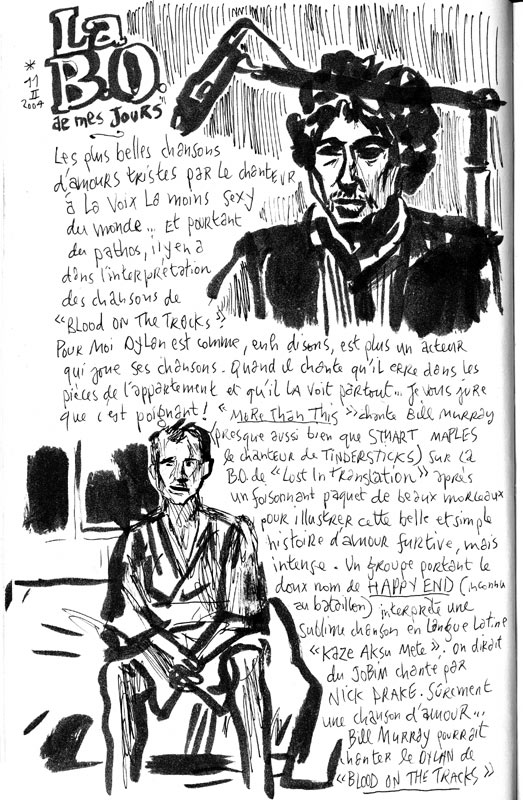 La
B.O.
de mes JOURS
*
11
II
2004
Les plus belles chansons
d'amours tristes par le chanteur
à la voix la moins sexy
du monde... Et pourtant
du pathos, il y en a
dans l'interprétation
des chansons de
"BLOOD ON THE TRACKS".
Pour moi Dylan est comme, enfin disons, est plus un acteur
qui joue ses chansons. Quand il chante qu'il erre dans les
pièces de l'appartement et qu'il la voit partout... Je vous jure
que c'est poignant! "MORE THAN THIS" chante Bill MURRAY
(presque aussi bien que STUART MAPLES
le chanteur de TINDERSTICKS) sur la
B.O. de "Lost In Translation" après
un foisonnant paquet de beaux morceaux
pour illustrer cette belle et simple
histoire d'amour furtive, mais
intense. Un groupe portant le
doux nom de HAPPY END (inconnu
au bataillon) interprète une
sublime chanson en langue latine
"KAZE AKSU METE". On dirait
du JOBIM chanté par
NICK DRAKE. Sûrement
une chanson d'amour...
Bill MURRAY pourrait
chanter le DYLAN de
"BLOOD ON THE TRACKS"